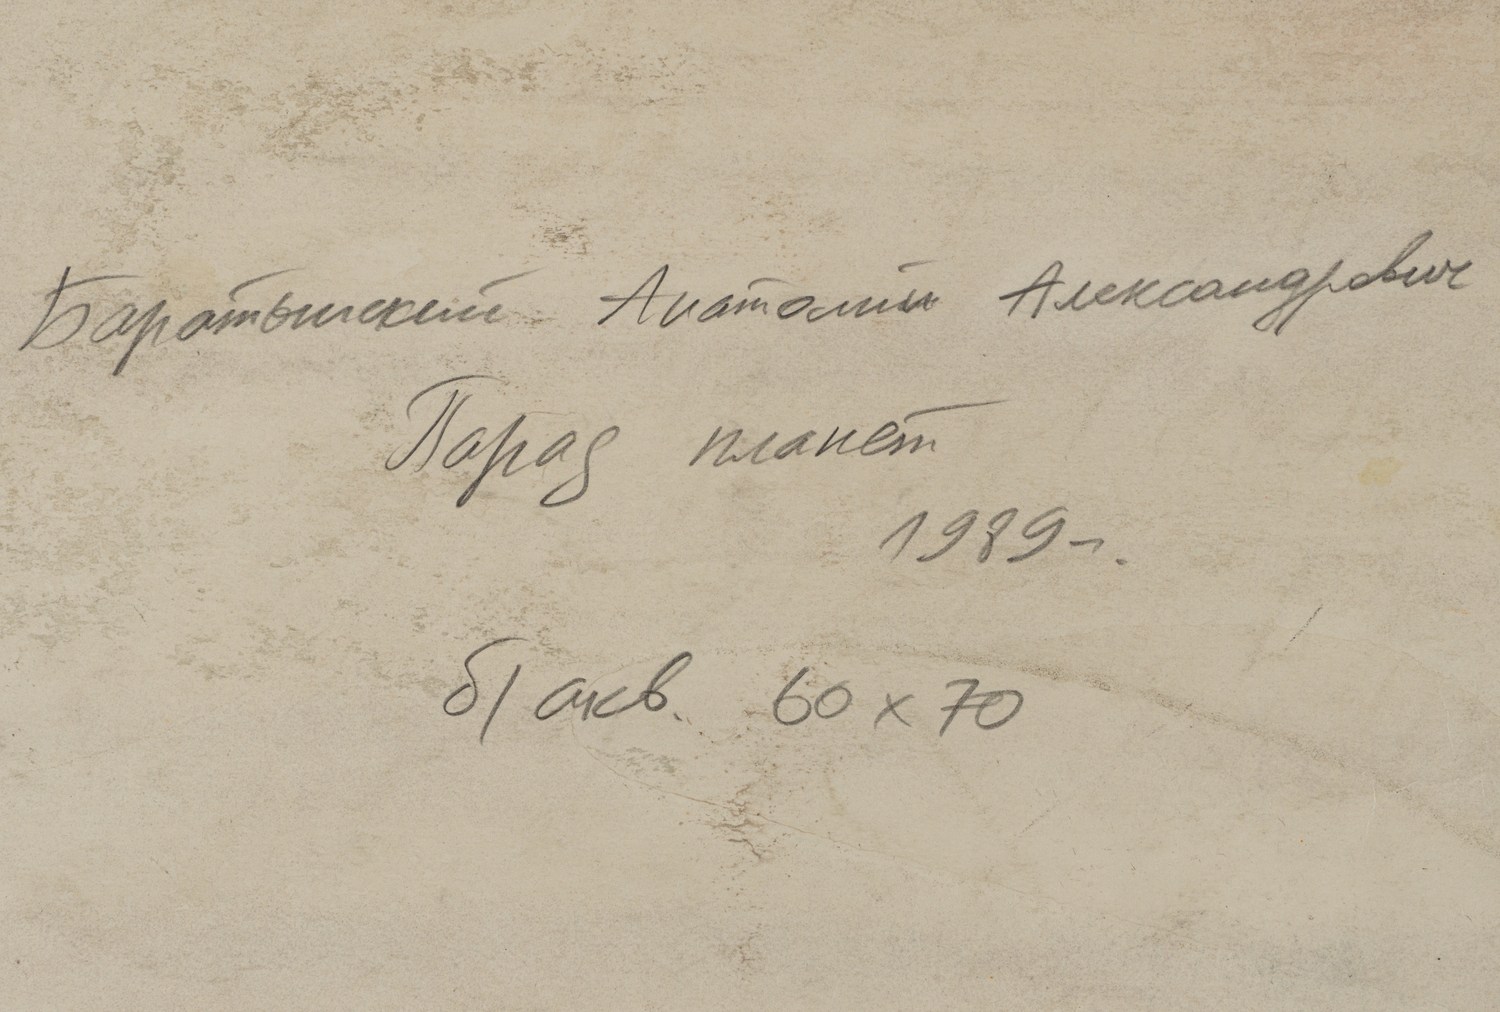 Баратынский Анатолий Александрович
Парад планет
1989 г.
б/акв. 60 х 70